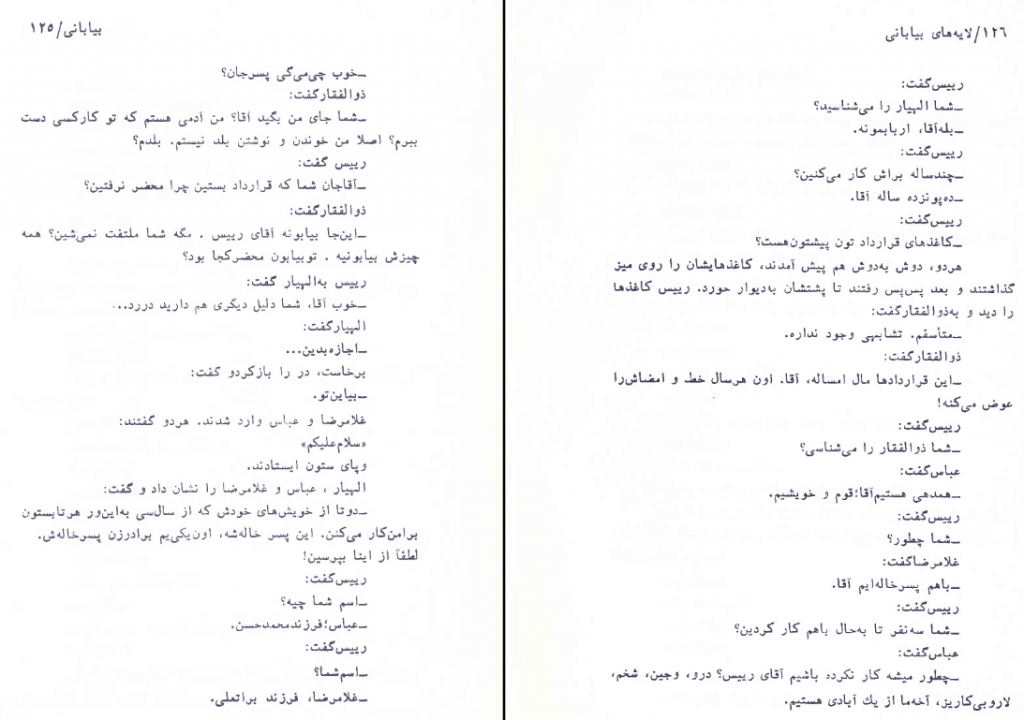 بیابانی/۱۲۵
ـ خوب چی‌می‌گی پسرجان؟
ذوالفقارگفت:
ـ شما جای من بگید آقا؟ من آدمی هستم که تو کارکسی دست
ببرم؟ اصلا من خوندن و نوشتن بلد نیستم. بلدم؟
رییس گفت:
ـ آقاجان شما که قرارداد بستین چرا محضر نرفتین؟
ذوالفقارگفت:
ـ این‌جا بیابونه آقای رییس . مگه شما ملتفت نمی‌شین؟ همه
چیزش بیابونیه . توبیابون محضرکجا بود؟
رییس به‌الهیار گفت:
ـ خوب آقا، شما دلیل دیگری هم دارید دررد...
الهیارگفت:
ـ اجازه‌بدین...
برخاست، در را بازکردو گفت:
ـ بیاین‌تو.
غلامرضا و عباس وارد شدند. هردو گفتند:
«سلام‌علیکم»
وپای ستون ایستادند.
الهیار ، عباس و غلامرضا را نشان داد و گفت:
ـ دوتا از خویش‌های خودش که از سال‌سی به‌این‌ور هرتابستون
برامن‌کار می‌کنن. این پسر خاله‌شه، اون‌یکی‌یم برادرزن پسرخاله‌ش.
لطفآ از اینا بپرسین!
رییس‌گفت:
ـ اسم شما چیه؟
ـ عباس؛فرزندمحمدحسن.
رییس‌گفت:
ـ اسم‌شما؟
ـ غلامرضا، فرزند براتعلی.
۱۲۶/لایه‌های بیابانی
رییس‌گفت:
ـ شما الهیار را می‌شناسید؟
ـ بله‌آقا، اربابمونه.
رییس‌گفت:
ـ چندساله براش کار می‌کنین؟
ـ ده‌پونزده ساله آقا.
رییس‌گفت:
ـ کاغذهای قرارداد تون پیشتون‌هست؟
هردو، دوش به‌دوش هم پیش آمدند، کاغذهایشان را روی میز
گذاشتند و بعد پس‌پس رفتند تا پشتشان به‌دیوار خورد. رییس کاغذها
را دید و به‌ذوالفقارگفت:
ـ متأسفم. تشابهی وجود نداره.
ذوالفقارگفت:
ـ این قراردادها مال امساله، آقا. اون هرسال خط و امضاش‌را
عوض می‌کنه!
رییس‌گفت:
ـ شما ذوالفقار را می‌شناسی؟
عباس‌گفت:
ـ همدهی هستیم‌آقا؛قوم و خویشیم.
رییس‌گفت:
ـ شما چطور؟
غلامرضاگفت:
ـ باهم پسرخاله‌ایم آقا.
رییس‌گفت:
ـ شما سه‌نفر تا به‌حال باهم کار کردین؟
عباس‌گفت:
ـ چطور میشه کار نکردد باشیم آقای رییس؟ درو، وجین، شخم،
لاروبی‌کاریز، آخه‌ما از یك آبادی هستیم.